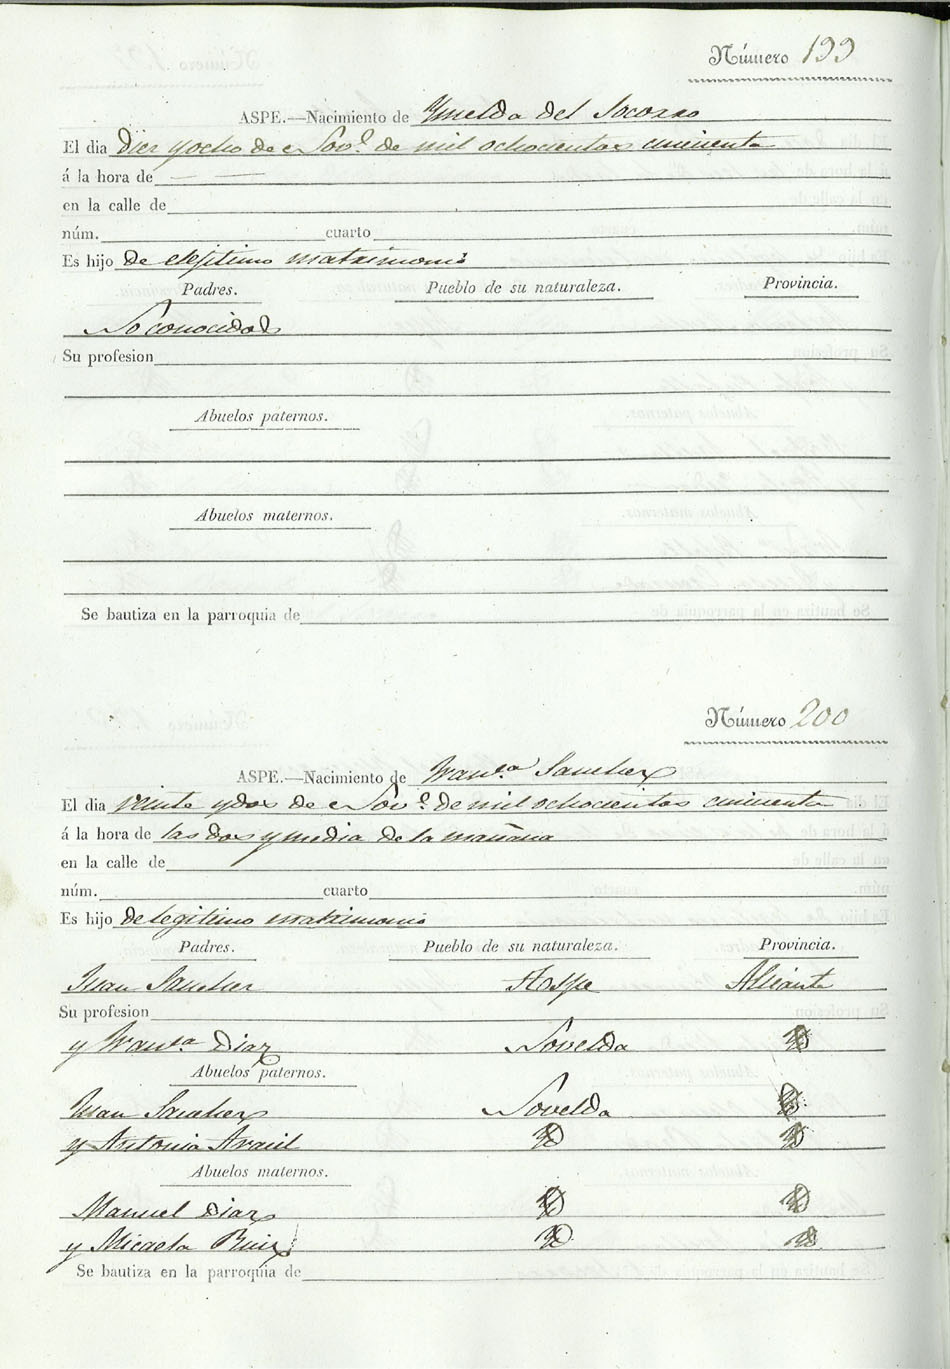 Número 199
ASPE.—Nacimiento de Ymelda del Socorro
El dia diez yocho de Nov.e de mil ochocientos cincuenta
á la hora de
en la calle de
núm. cuarto
Es hijo de elejitimo matrimonio
Padres. Pueblo de su naturaleza. Provincia.
No conocidos
Su profesion
Abuelos paternos.
Abuelos maternos.
Se bautiza en la parroquia de
Número 200
ASPE.—Nacimiento de Fran.ca Sanchez
El dia veinte ydos de Nov.e de mil ochocientos cincuenta
á la hora de las dos y media de la mañana
en la calle de
núm. cuarto
Es hijo de legitimo matrimonio
Padres. Pueblo de su naturaleza. Provincia.
Juan Sanchez Aspe Alicante
Su profesion
y Fran.ca Diaz Novelda
Abuelos paternos.
Juan Sanchez Novelda
y Antonia
Abuelos maternos.
Manuel Diaz
y Micaela Ruiz
Se bautiza en la parroquia de